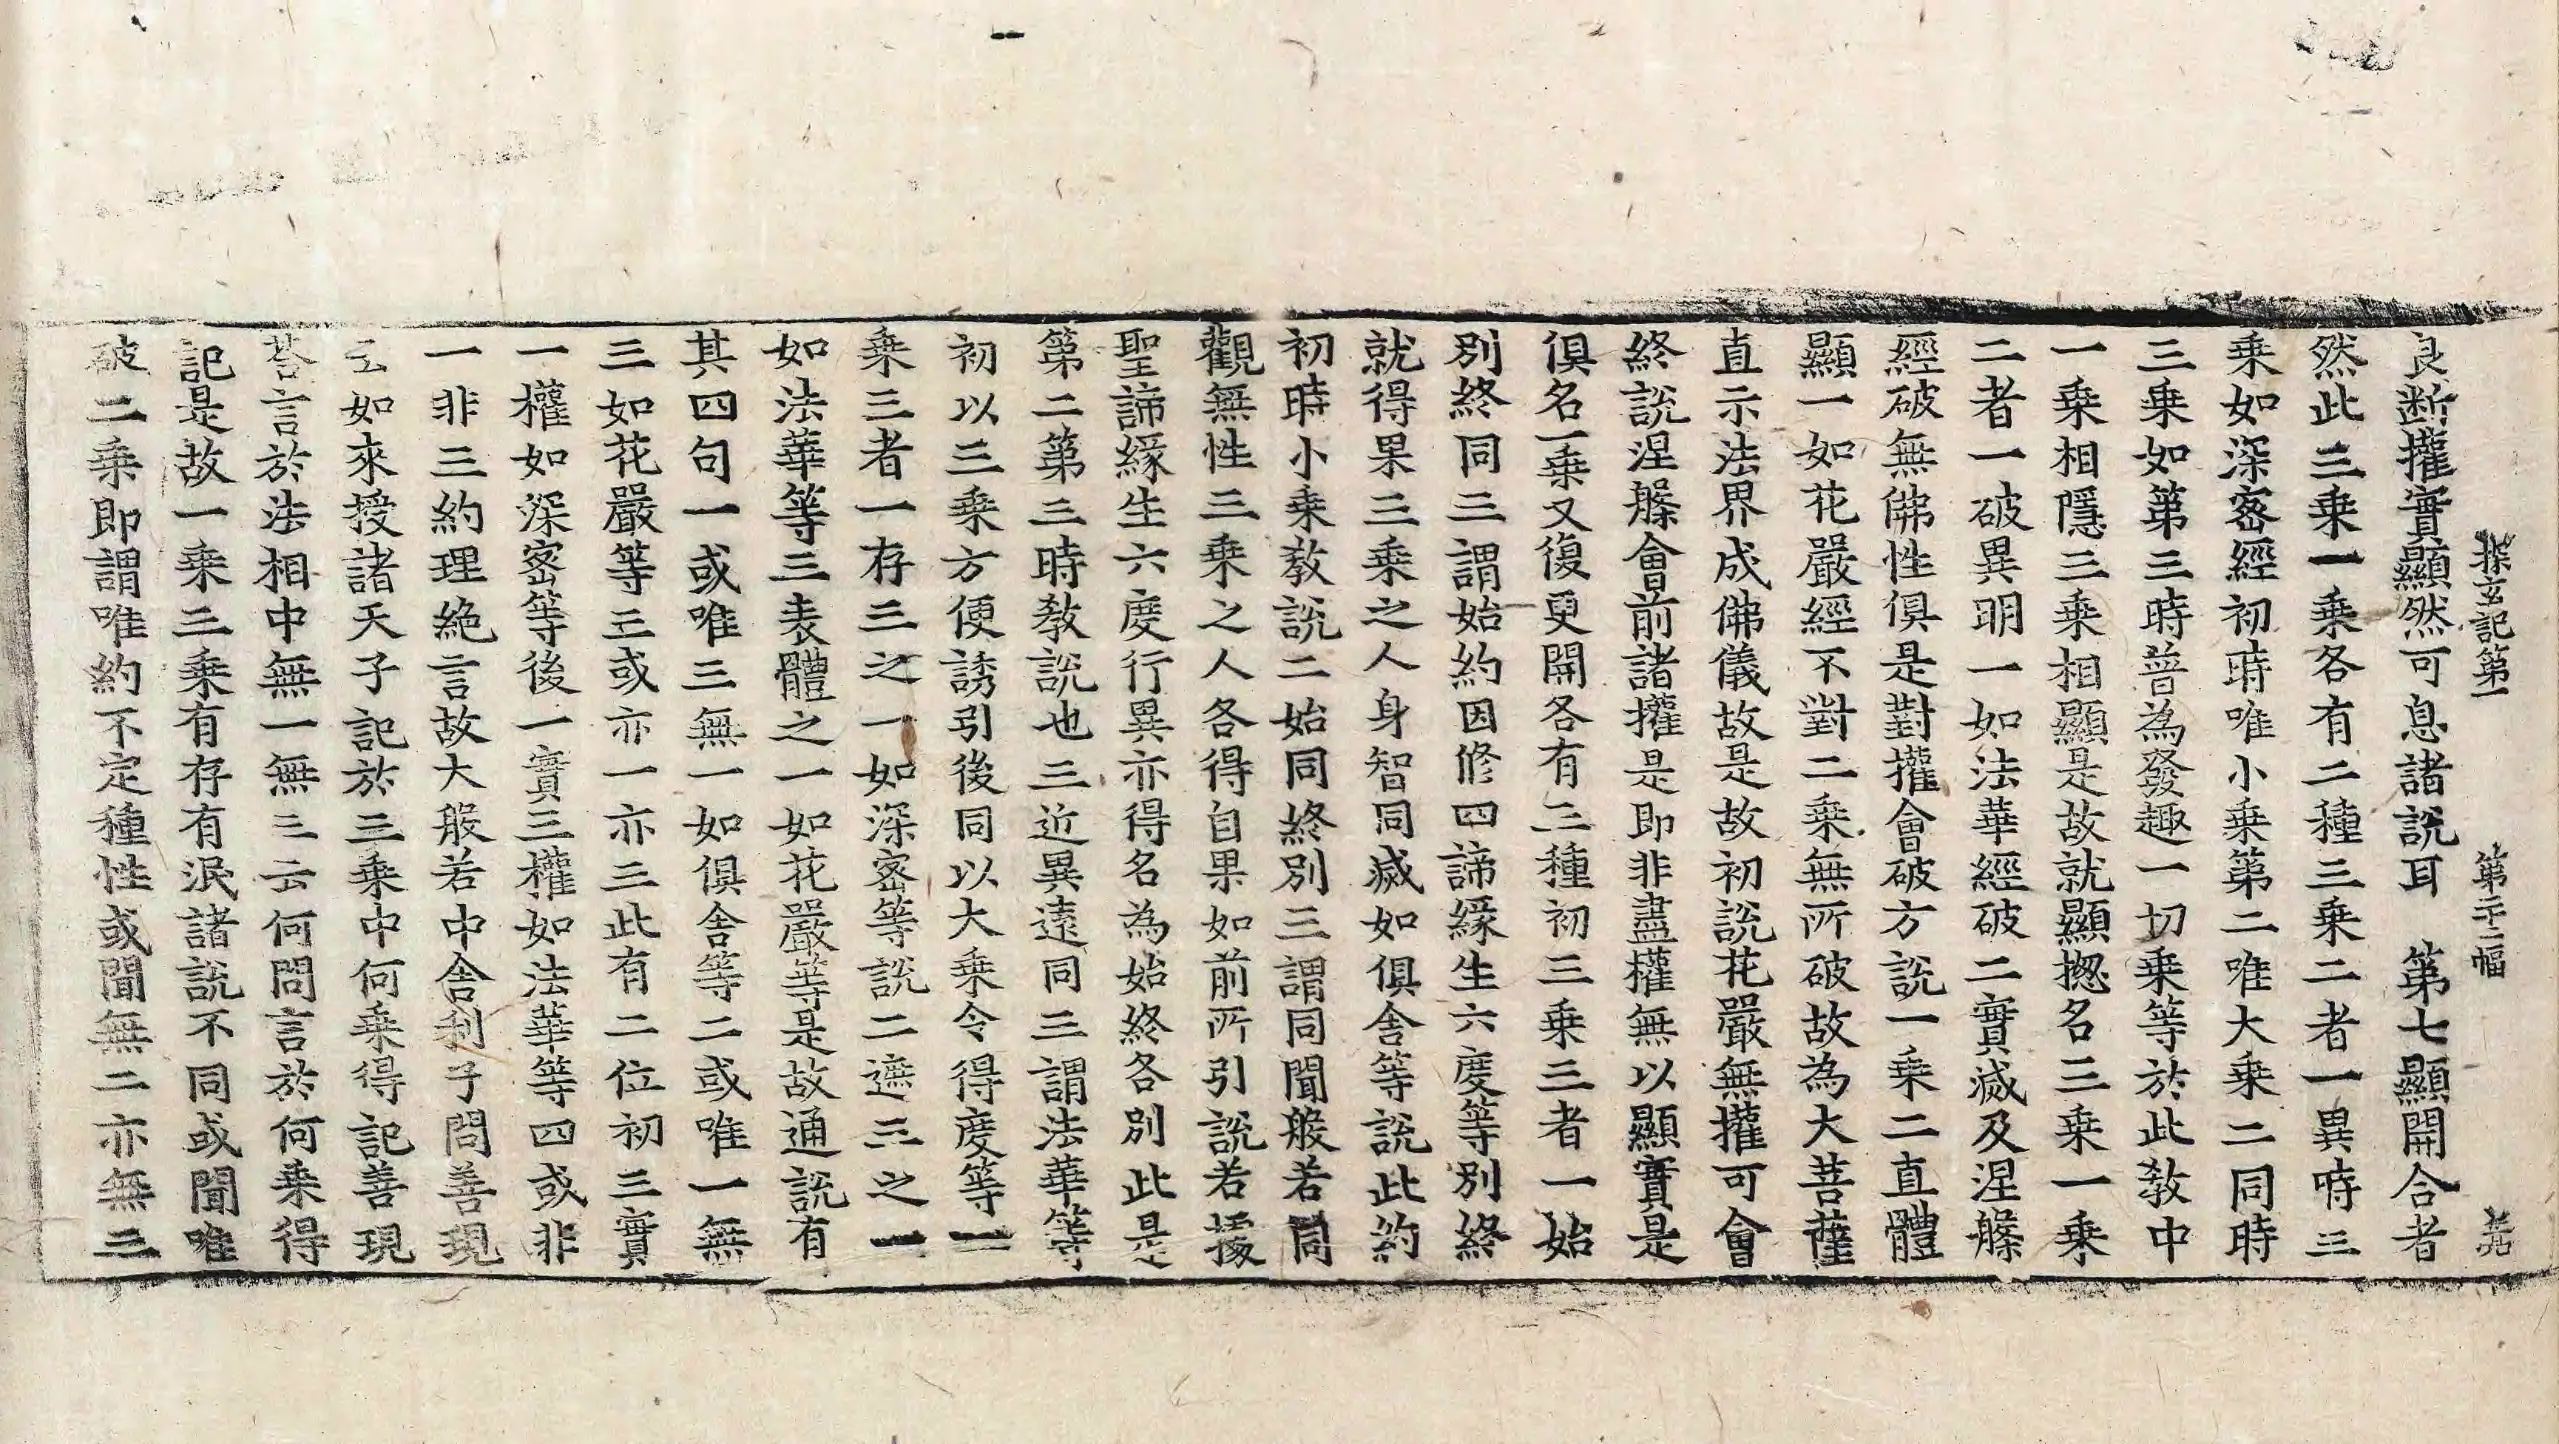 探玄記第一 第二十二幅
良断權實顯然可息諸說耳 第七顯開合者
然此三乗一乗各有二種三乗二者一異時三
乗如深密經初時唯小乗第二唯大乗二同時
三乗如第三時普為發趣一切乗等於此教中
一乗相隱三乗相顯是故就顯揔名三乗一乗
二者一破異明一如法華經破二實滅及涅槃
經破無佛性俱是對權會破方説一乗二直體
顯一如花嚴經不對二乗無所破故為大菩薩
直示法界成佛儀故是故初説花嚴無權可會
終説涅槃會前諸權是即非盡權無以顯實是
俱名一乗又復更開各有三種初三乗三者一始
別終同三謂始約因修四諦緣生六度等別終
就得果三乗之人身智同滅如俱舍等說此約
初時小乗教說二始同終別三謂同聞般若同
觀無性三乗之人各得自果如前所引說若據
聖諦緣生六度行異亦得名為始終各別此是
第二第三時教說也三近異遠同三謂法華等
初以三乗方便誘引後同以大乗令得度等一
乗三者一存三之一如深密等說二遮三之一
如法華等三表體之一如花嚴等是故通說有
其四句一或唯三無一如俱舍等二或唯一無
三如花嚴等三或亦一亦三此有二位初三實
一權如深密等後一實三權如法華等四或非
一非三約理絶言故大般若中舍利子問善現
云如來授諸天子記於三乗中何乗得記善現
荅言於法相中無一無三云何問言於何乗得
記是故一乗三乗有存有泯諸說不同或聞唯
破二乗即謂唯約不定種性或聞無二亦無三